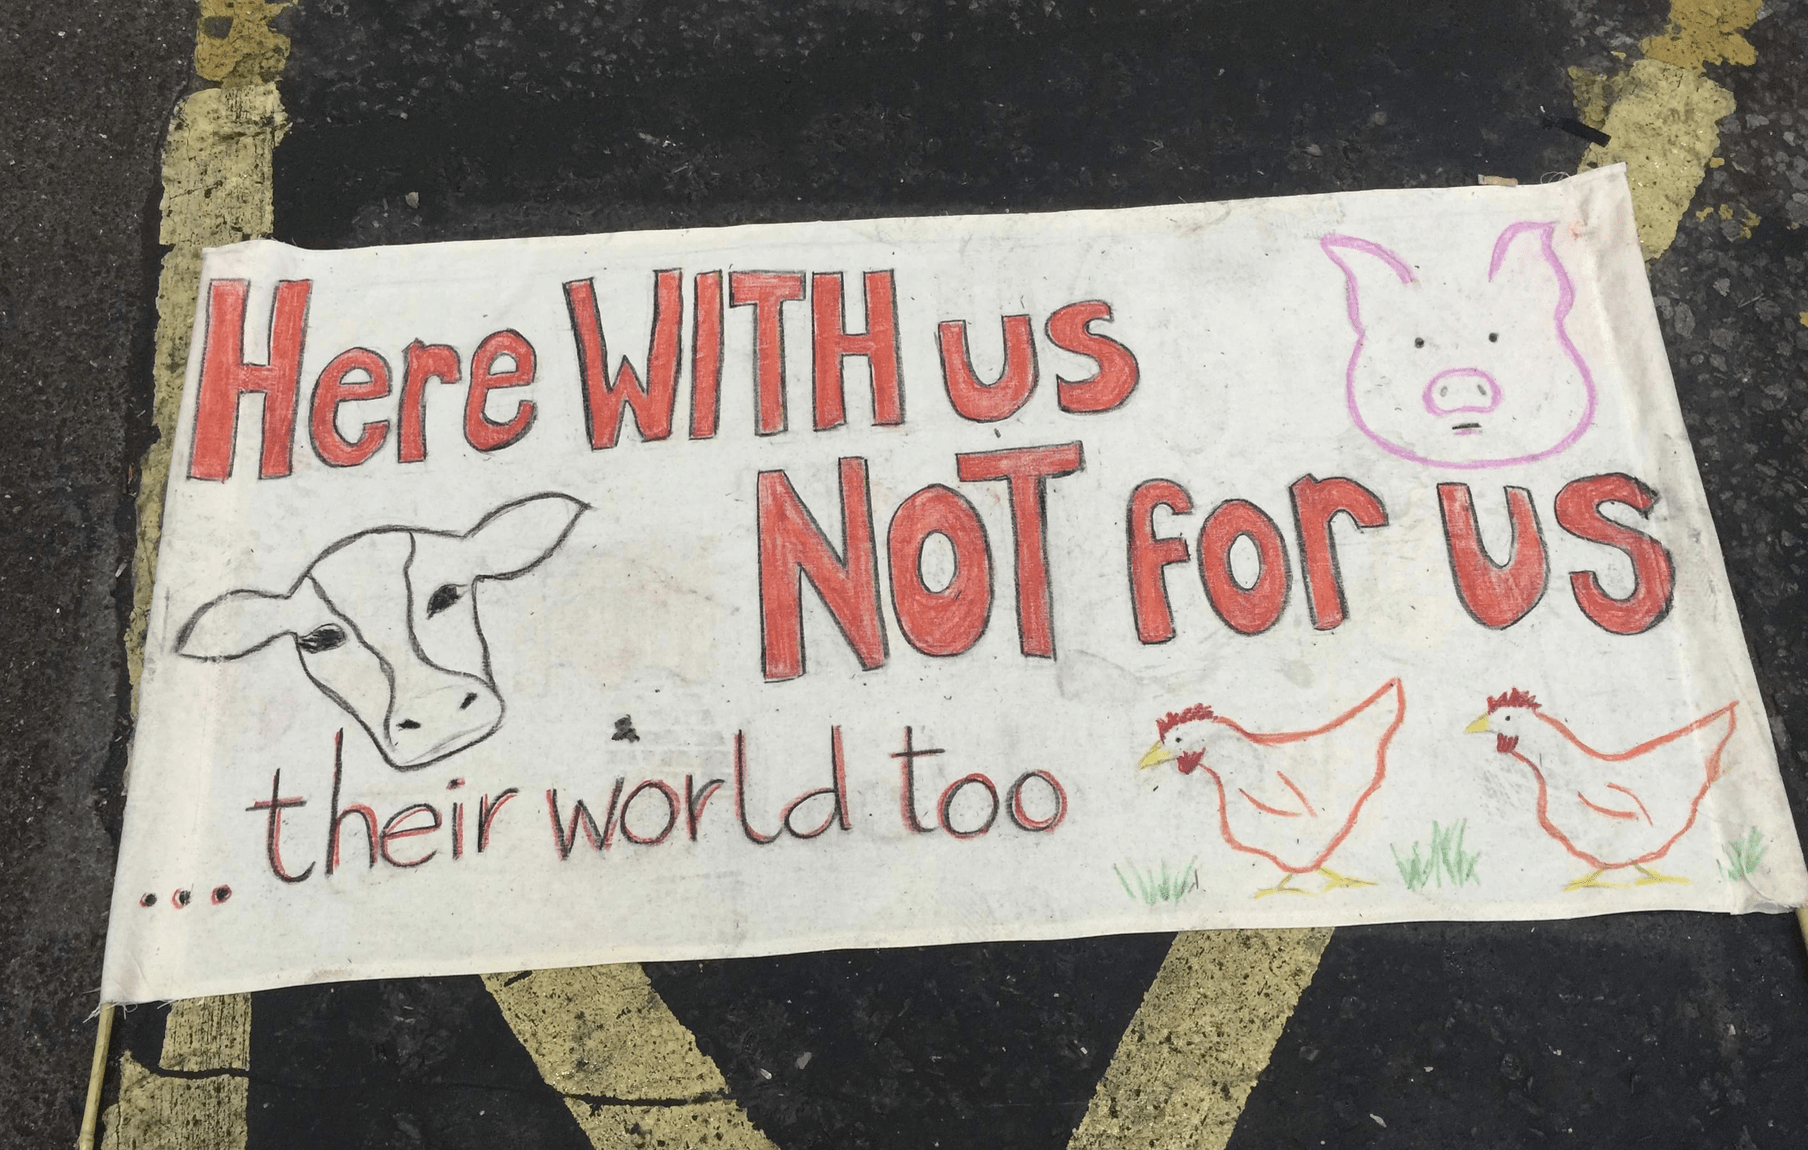 Here WITH us
NOT for us
...their world too